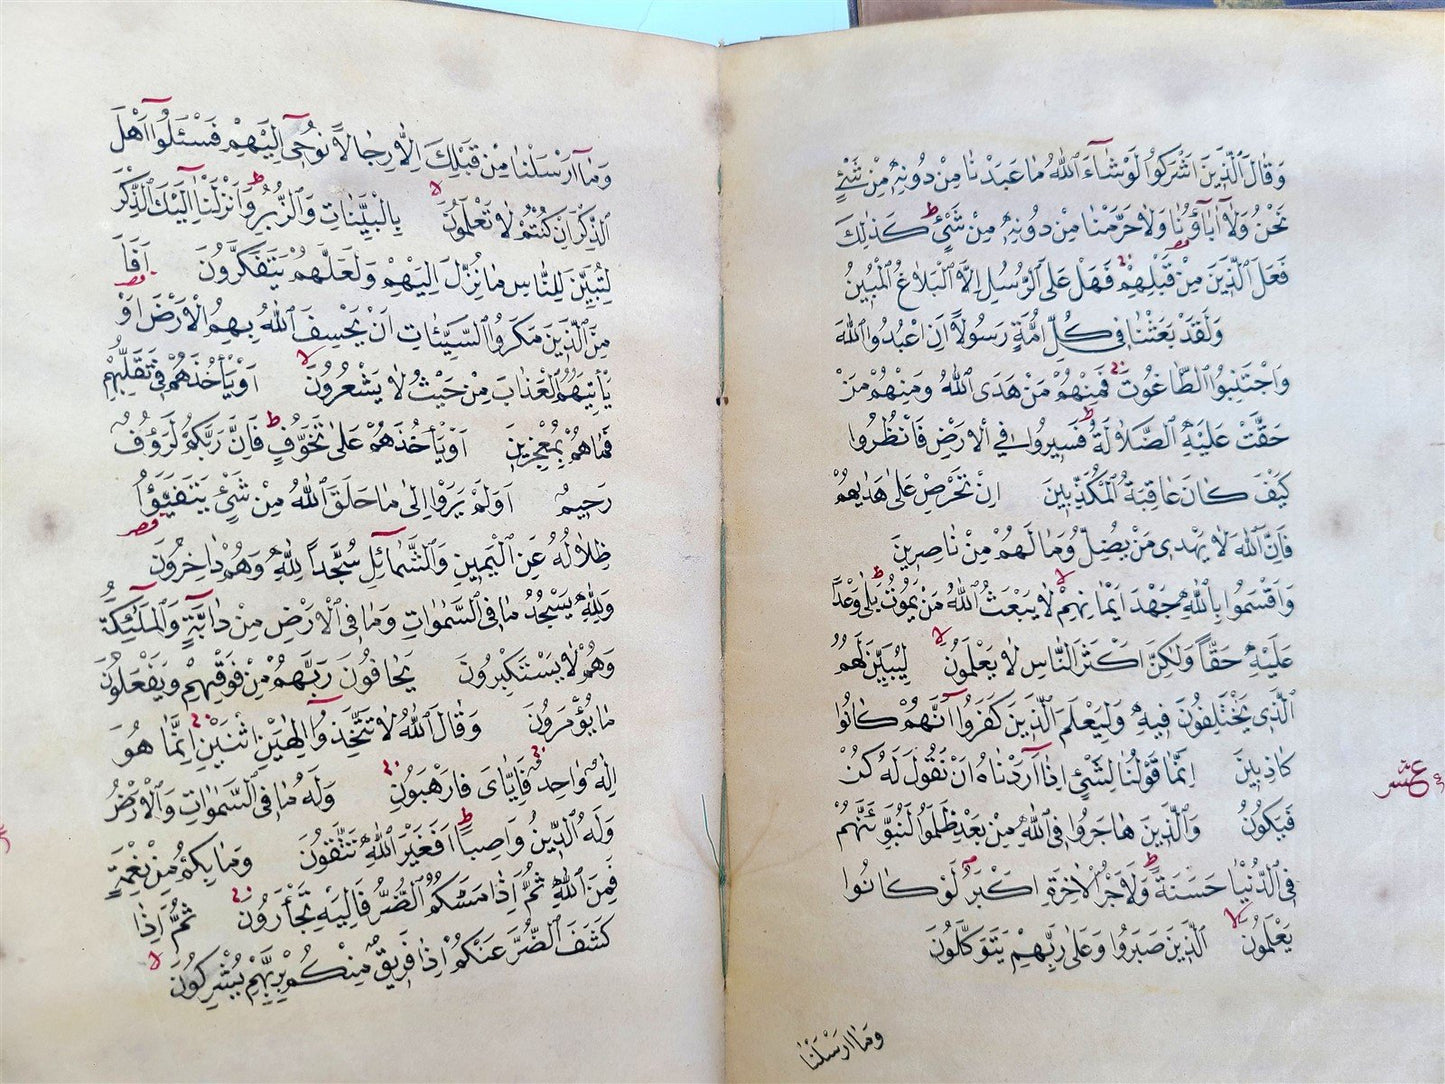 وَقَالَ ٱلَّذِينَ اَشْرَكُوا لَوْ شَٓاءَ ٱللّٰهُ مَا عَبَدْنَا مِنْ دُونِهٖ مِنْ شَيْءٍ
نَحْنُ وَلَٓا اٰبَٓاؤُ۬نَا وَلَا حَرَّمْنَا مِنْ دُونِهٖ مِنْ شَيْءٍ ط كَذٰلِكَ
فَعَلَ ٱلَّذِينَ مِنْ قَبْلِهِمْ فَهَلْ عَلَى ٱلرُّسُلِ اِلَّا ٱلْبَلَاغُ ٱلْمُبِينُ
وَلَقَدْ بَعَثْنَا فِي كُلِّ اُمَّةٍ رَسُولًا اَنِ ٱعْبُدُوا ٱللّٰهَ
وَاجْتَنِبُوا ٱلطَّاغُوتَ فَمِنْهُمْ مَنْ هَدَى ٱللّٰهُ وَمِنْهُمْ مَنْ
حَقَّتْ عَلَيْهِ ٱلضَّلَالَةُ ط فَسِيرُوا فِي ٱلْاَرْضِ فَانْظُرُوا
كَيْفَ كَانَ عَاقِبَةُ ٱلْمُكَذِّبِينَ اِنْ تَحْرِصْ عَلٰى هُدٰيهُمْ
فَاِنَّ ٱللّٰهَ لَا يَهْدِى مَنْ يُضِلُّ وَمَا لَهُمْ مِنْ نَاصِرِينَ
وَاَقْسَمُوا بِٱللّٰهِ جَهْدَ اَيْمَانِهِمْ لا لَا يَبْعَثُ ٱللّٰهُ مَنْ يَمُوتُ ط بَلٰى وَعْدًا
عَلَيْهِ حَقًّا وَلٰكِنَّ اَكْثَرَ ٱلنَّاسِ لَا يَعْلَمُونَ لا لِيُبَيِّنَ لَهُمُ
ٱلَّذِى يَخْتَلِفُونَ فِيهِ وَلِيَعْلَمَ ٱلَّذِينَ كَفَرُٓوا اَنَّهُمْ كَانُوا
كَاذِبِينَ اِنَّمَا قَوْلُنَا لِشَيْءٍ اِذَٓا اَرَدْنَاهُ اَنْ نَقُولَ لَهُ كُنْ
فَيَكُونُ وَٱلَّذِينَ هَاجَرُوا فِى ٱللّٰهِ مِنْ بَعْدِ مَا ظُلِمُوا لَنُبَوِّئَنَّهُمْ
فِى ٱلدُّنْيَا حَسَنَةً ط وَلَاَجْرُ ٱلْاٰخِرَةِ اَكْبَرُ لَوْ كَانُوا
يَعْلَمُونَ لا ٱلَّذِينَ صَبَرُوا وَعَلٰى رَبِّهِمْ يَتَوَكَّلُونَ
وَمَٓا اَرْسَلْنَا
عشر
وَمَٓا اَرْسَلْنَا مِنْ قَبْلِكَ اِلَّا رِجَالًا نُوحِٓى اِلَيْهِمْ فَسْـَٔلُٓوا اَهْلَ
ٱلذِّكْرِ اِنْ كُنْتُمْ لَا تَعْلَمُونَ لا بِالْبَيِّنَاتِ وَٱلزُّبُرِ ط وَاَنْزَلْنَٓا اِلَيْكَ ٱلذِّكْرَ
لِتُبَيِّنَ لِلنَّاسِ مَا نُزِّلَ اِلَيْهِمْ وَلَعَلَّهُمْ يَتَفَكَّرُونَ اَفَاَ
مِنَ ٱلَّذِينَ مَكَرُوا ٱلسَّيِّئَاتِ اَنْ يَخْسِفَ ٱللّٰهُ بِهِمُ ٱلْاَرْضَ اَوْ
يَأْتِيَهُمُ ٱلْعَذَابُ مِنْ حَيْثُ لَا يَشْعُرُونَ لا اَوْ يَأْخُذَهُمْ فِى تَقَلُّبِهِمْ
فَمَا هُمْ بِمُعْجِزِينَ اَوْ يَأْخُذَهُمْ عَلٰى تَخَوُّفٍ ط فَاِنَّ رَبَّكُمْ لَرَؤُفٌ
رَحِيمٌ اَوَلَمْ يَرَوْا اِلٰى مَا خَلَقَ ٱللّٰهُ مِنْ شَيْءٍ يَتَفَيَّؤُا
ظِلَالُهُ عَنِ ٱلْيَمِينِ وَٱلشَّمَٓائِلِ سُجَّدًا لِلّٰهِ وَهُمْ دَاخِرُونَ
وَلِلّٰهِ يَسْجُدُ مَا فِى ٱلسَّمٰوَاتِ وَمَا فِى ٱلْاَرْضِ مِنْ دَٓابَّةٍ وَٱلْمَلٰٓئِكَةُ
وَهُمْ لَا يَسْتَكْبِرُونَ يَخَافُونَ رَبَّهُمْ مِنْ فَوْقِهِمْ وَيَفْعَلُونَ
مَا يُؤْمَرُونَ وَقَالَ ٱللّٰهُ لَا تَتَّخِذُٓوا اِلٰهَيْنِ ٱثْنَيْنِ اِنَّمَا هُوَ
اِلٰهٌ وَاحِدٌ فَاِيَّاىَ فَارْهَبُونِ وَلَهُ مَا فِى ٱلسَّمٰوَاتِ وَٱلْاَرْضِ
وَلَهُ ٱلدِّينُ وَاصِبًا ط اَفَغَيْرَ ٱللّٰهِ تَتَّقُونَ وَمَا بِكُمْ مِنْ نِعْمَةٍ
فَمِنَ ٱللّٰهِ ثُمَّ اِذَا مَسَّكُمُ ٱلضُّرُّ فَاِلَيْهِ تَجْـَٔرُونَ ثُمَّ اِذَا
كَشَفَ ٱلضُّرَّ عَنْكُمْ اِذَا فَرِيقٌ مِنْكُمْ بِرَبِّهِمْ يُشْرِكُونَ لا